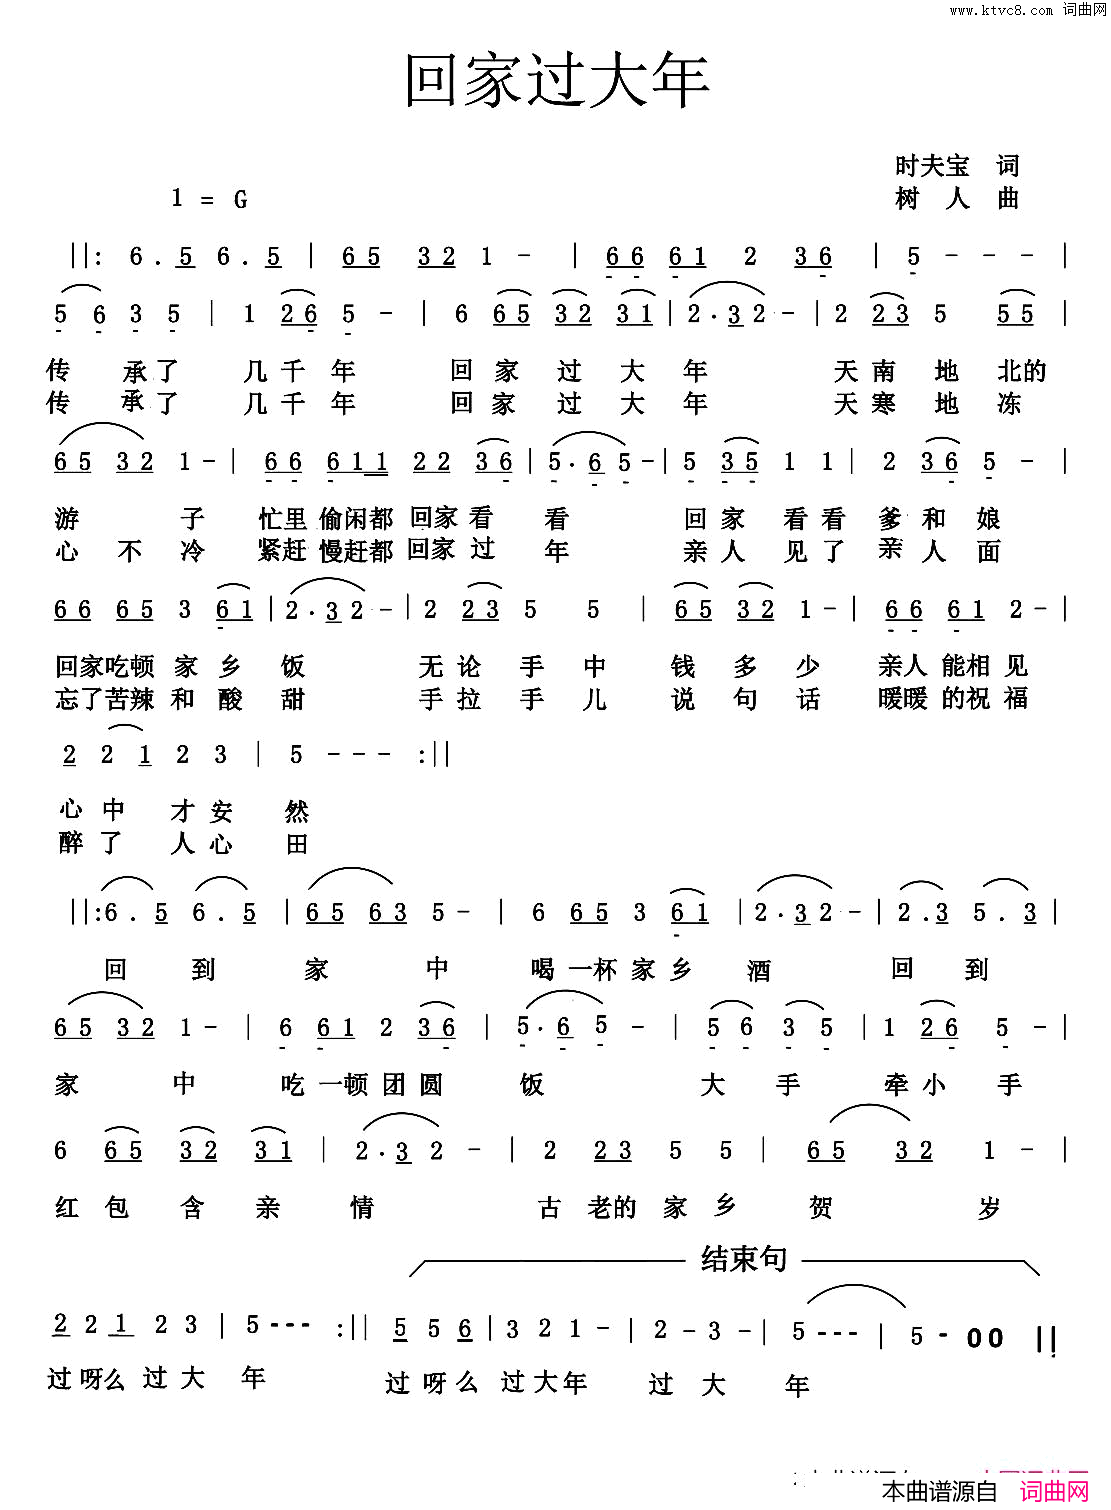 www.ktvc8.com 词曲网
回家过大年
时夫宝 词
1 = G
树 人 曲
||: 6 . 5 6 . 5 | 65 32 1 - | 66 61 2 36 | 5 - - - |
5 6 3 5 | 1 26 5 - | 6 65 32 31 | 2 . 32 - | 2 23 5 55 |
传 承 了 几 千 年 回 家 过 大 年 天 南 地 北的
传 承 了 几 千 年 回 家 过 大 年 天 寒 地 冻
65 32 1 - | 66 611 22 36 | 5 . 6 5 - | 5 35 1 1 | 2 36 5 - |
游 子 忙里 偷闲都 回家 看 看 回 家 看 看 爹 和 娘
心 不 冷 紧赶 慢赶都 回家 过 年 亲 人 见 了 亲 人 面
66 65 3 61 | 2 . 32 - | 2 23 5 5 | 65 32 1 - | 66 61 2 - |
回家吃顿 家 乡 饭 无 论 手 中 钱 多 少 亲人 能相 见
忘了苦辣 和 酸 甜 手 拉 手 儿 说 句 话 暖暖 的祝 福
2 2 1 2 3 | 5 - - - :||
心 中 才 安 然
醉 了 人 心 田
||: 6 . 5 6 . 5 | 65 63 5 - | 6 65 3 61 | 2 . 32 - | 2 . 3 5 . 3 |
回 到 家 中 喝 一杯 家 乡 酒 回 到
65 32 1 - | 6 61 2 36 | 5 . 6 5 - | 5 6 3 5 | 1 26 5 - |
家 中 吃 一顿 团 圆 饭 大 手 牵 小 手
6 65 32 31 | 2 . 3 2 - | 2 23 5 5 | 65 32 1 - |
红 包 含 亲 情 古 老的 家 乡 贺 岁
结束句
2 2 1 2 3 | 5 - - - :|| 5 5 6 | 3 2 1 - | 2 - 3 - | 5 - - - | 5 - 0 0 ||
过 呀么 过 大 年 过 呀 么 过 大 年 过 大 年
本曲谱源自 词曲网